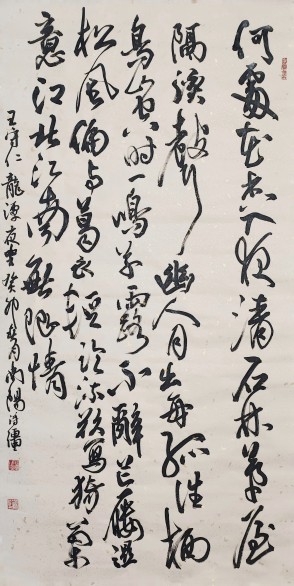 何處花香入夜清石林茅屋
隔溪聲幽人月出每孤往栖
鳥山空時一鳴草露不辭芒屨濕
松風偏与葛衣輕臨流欲寫猗蘭
意江北江南無限情
王守仁龍潭夜坐癸卯秋月南陽